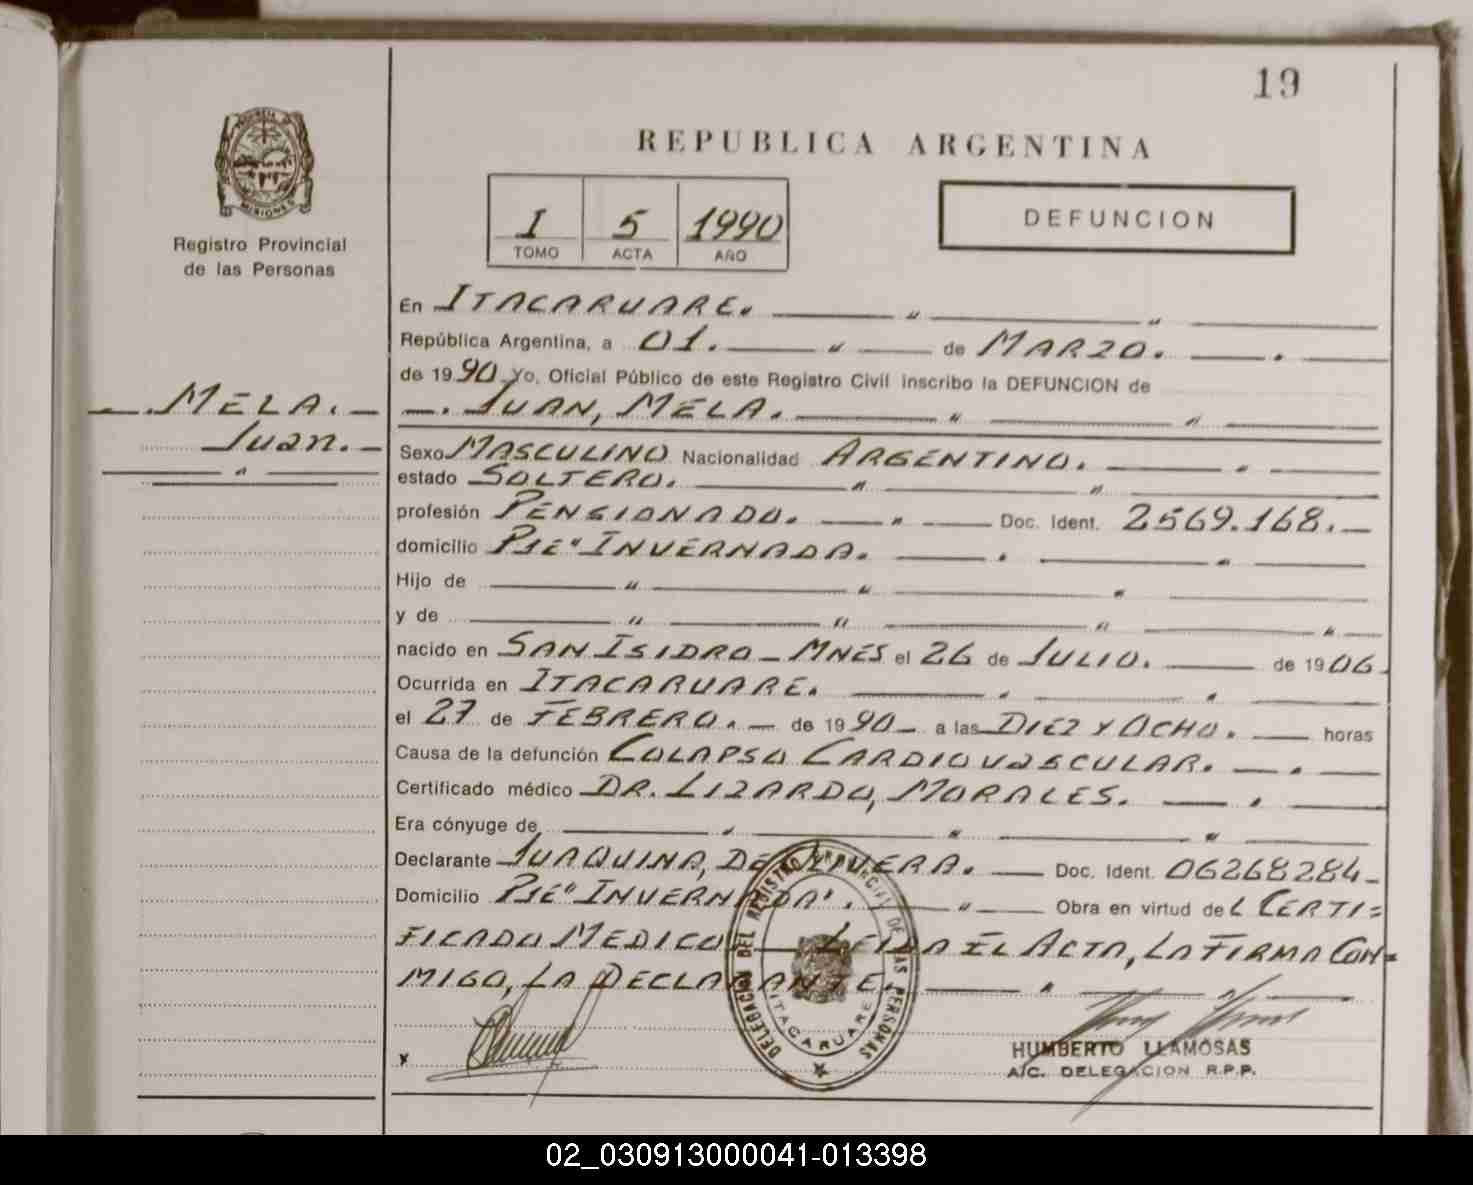 19
REPUBLICA ARGENTINA
PROVINCIA DE MISIONES
Registro Provincial
de las Personas
I 5 1990
TOMO ACTA AÑO
DEFUNCION
En ITACARUARE.
República Argentina, a 01. de MARZO.
de 1990 Yo, Oficial Público de este Registro Civil inscribo la DEFUNCION de
MELA.
Juan.
JUAN, MELA.
Sexo MASCULINO Nacionalidad ARGENTINO.
estado SOLTERO.
profesión PENSIONADO. Doc. Ident. 2569.168.
domicilio PJE" INVERNADA.
Hijo de
y de
nacido en SAN ISIDRO - MNES el 26 de JULIO. de 1906
Ocurrida en ITACARUARE.
el 27 de FEBRERO. de 1990 a las DIEZ Y OCHO. horas
Causa de la defunción COLAPSO CARDIOVASCULAR.
Certificado médico DR. LIZARDO, MORALES.
Era cónyuge de
Declarante JUAQUINA, DE OLIVERA. Doc. Ident. 06268284
Domicilio PJE" INVERNADA". Obra en virtud del CERTI=
FICADO MEDICO LEIDA EL ACTA, LA FIRMA CON=
MIGO, LA DECLARANTE.
x
DELEGACION DEL REGISTRO PROVINCIAL DE LAS PERSONAS
ITACARUARE
HUMBERTO LLAMOSAS
A/C. DELEGACION R.P.P.
02_030913000041-013398